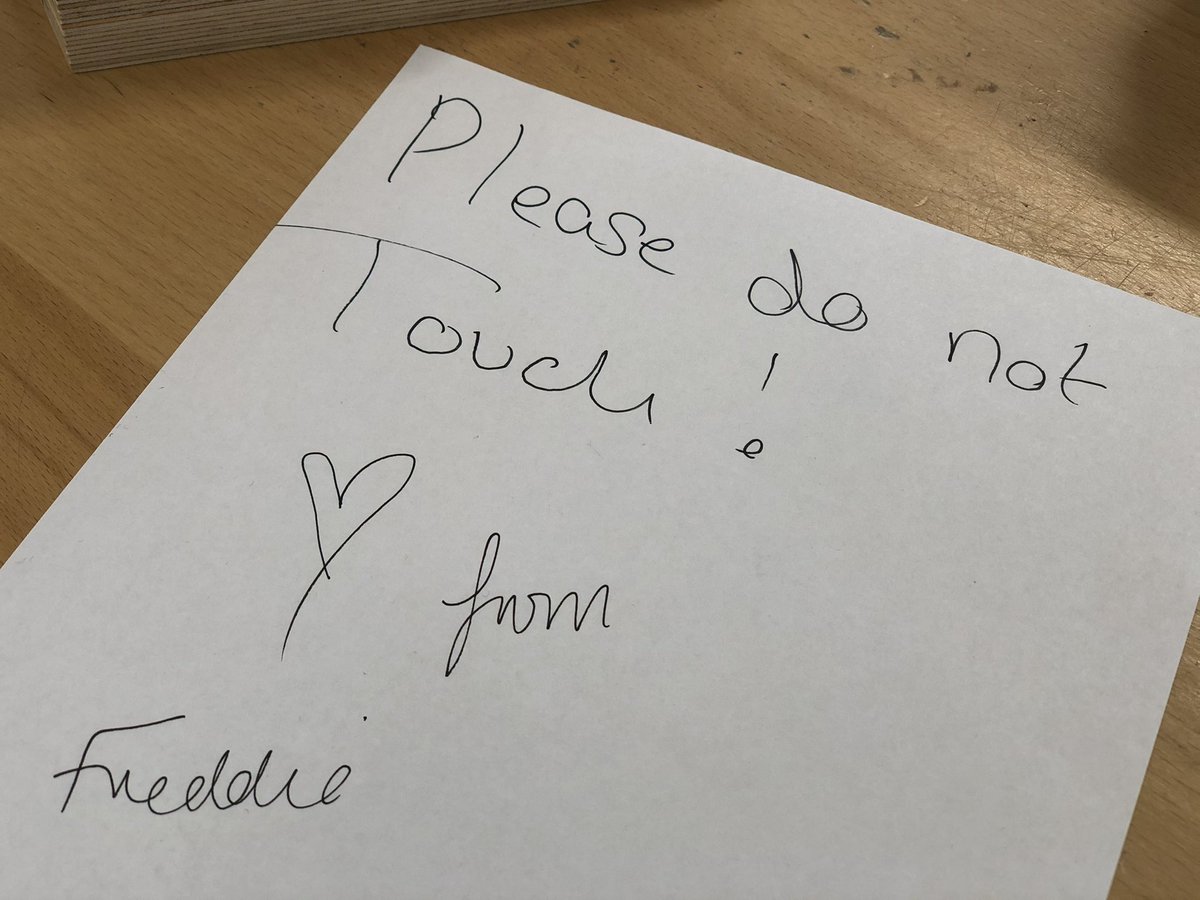 Please do not
Touch!
♡ from
Freddie